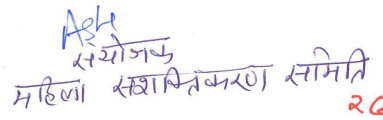 संयोजक
महिला सशक्तिकरण समिति
26